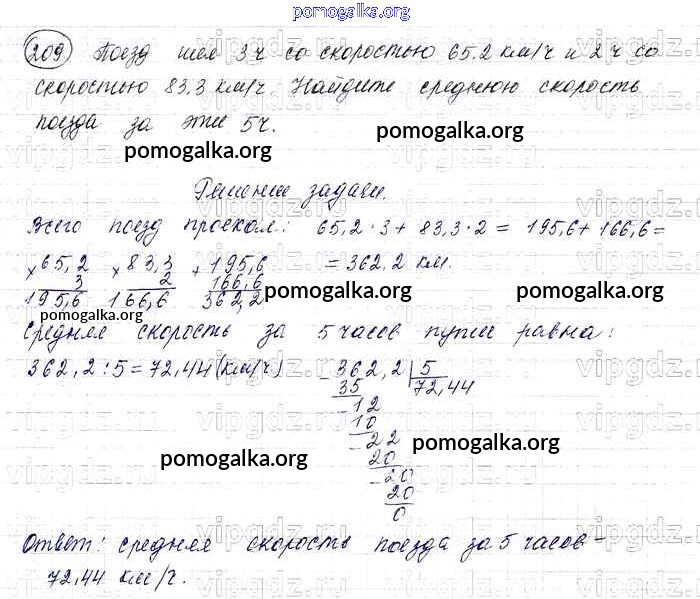 pomogalka.org
209 Поезд шел 3ч со скоростью 65,2 км/ч и 2 ч со
скоростью 83,3 км/ч. Найдите среднюю скорость
поезда за эти 5ч.
pomogalka.org
pomogalka.org
Решение задачи.
Всего поезд проехал: 65,2·3+83,3·2=195,6+166,6=
=362,2 км.
×65,2 ×83,3 +195,6
3 2 166,6
195,6 166,6 362,2
pomogalka.org pomogalka.org
pomogalka.org
Средняя скорость за 5 часов пути равна:
362,2:5=72,44(км/ч)
-362,2 5
35 72,44
-12
10
-22
20
-20
20
0
pomogalka.org
pomogalka.org
Ответ: средняя скорость поезда за 5 часов-
72,44 км/ч.
vipgdz.ru